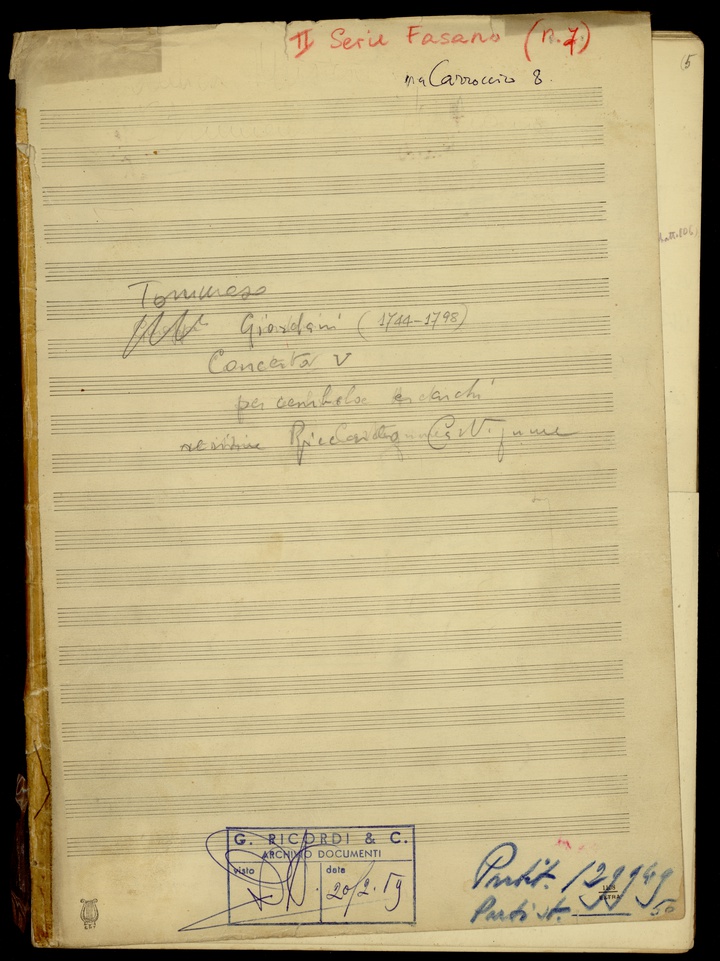 II Serie Fasano (n.7)
via Carroccio 8.
(5
Tommaso
Giordani (1744-1798)
Concerto V
per cembalo e archi
revisione Castagnone
G. RICORDI & C.
ARCHIVIO DOCUMENTI
visto
data
20/2.59
Partit. 129949
Parti st. 50